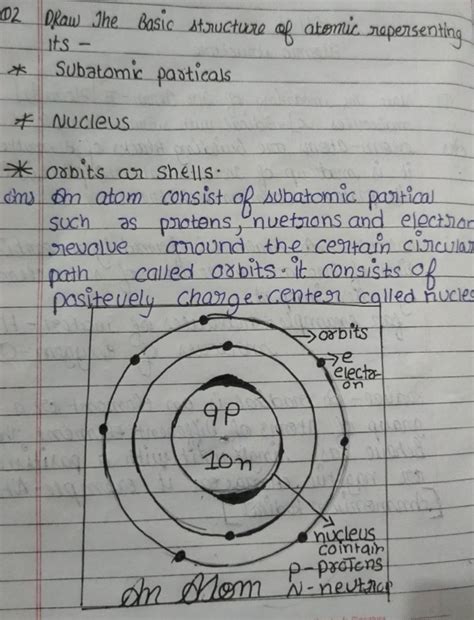 02 DRaw The Basic structure of atomic repersenting
its -
* Subatomic particals
* Nucleus
* orbits or shells.
Ans) An atom consist of subatomic partical
such as protens, nuetrons and electron
revolue around the certain circular
path called orbits. it consists of
positevely charge. center called nucles
orbits
e
electr-
on
9P
10n
nucleus
cointain
P-protens
N-neutra
An Atom